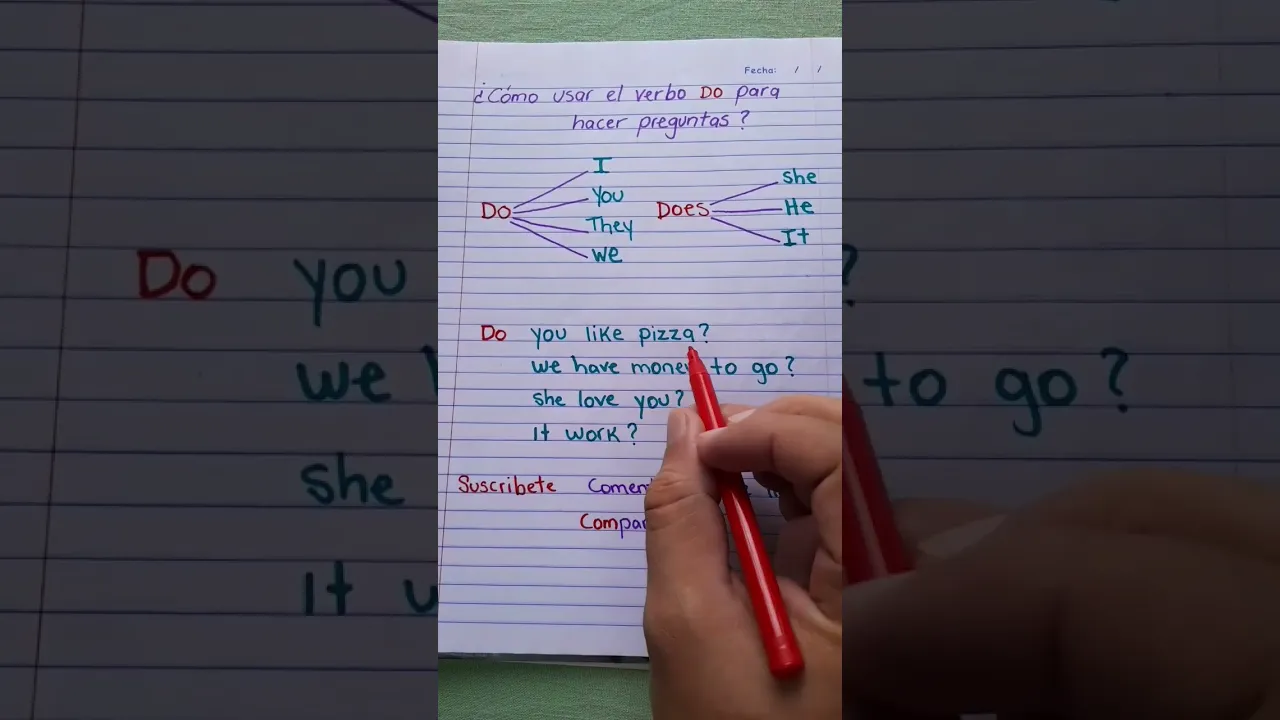 Fecha: / /
¿Cómo usar el verbo Do para
hacer preguntas?
Do
I
You
They
We
Does
she
He
It
Do you like pizza?
we have money to go?
she love you?
It work?
Suscribete